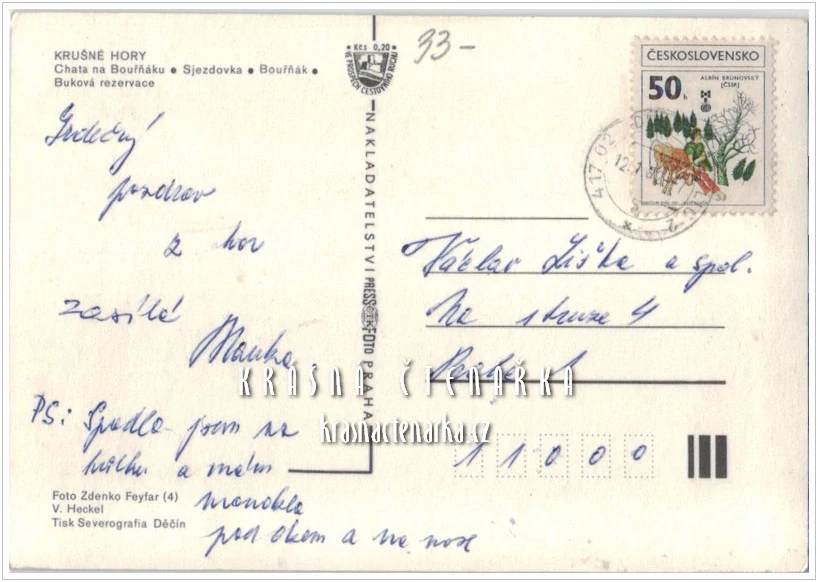 KRUŠNÉ HORY
Chata na Bouřňáku ● Sjezdovka ● Bouřňák ●
Buková rezervace
Kčs 0,20
VE PROSPĚCH CESTOVNÍHO RUCHU
33-
ČESKOSLOVENSKO
ALBÍN BRUNOVSKÝ
(ČSSR)
50 h
417 02
12.1
NAKLADATELSTVÍ PRESSFOTO PRAHA
Srdečný
pozdrav
z hor
zasílá
Hanka
Václav Liška a spol.
Na struze 4
Praha 1
11000
KRÁSNÁ ČTENÁŘKA
krasnactenarka.cz
PS: Spadla jsem na
hůlku a mám
monokla
pod okem a na nose
Foto Zdenko Feyfar (4)
V. Heckel
Tisk Severografia Děčín